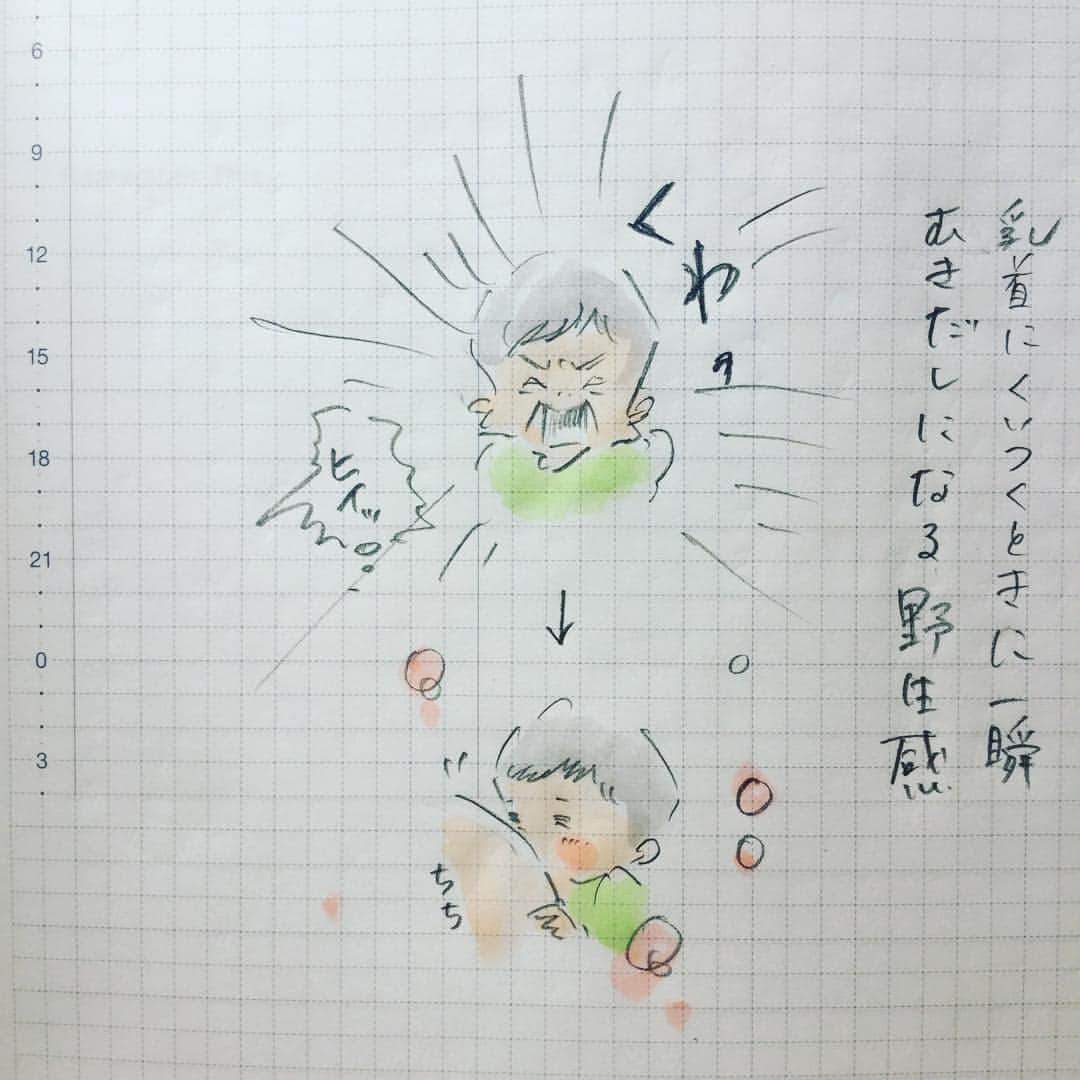 乳首にくいつくときに一瞬
むきだしになる野生感
くわっ
ヒイッ
ちち
6
9
12
15
18
21
0
3